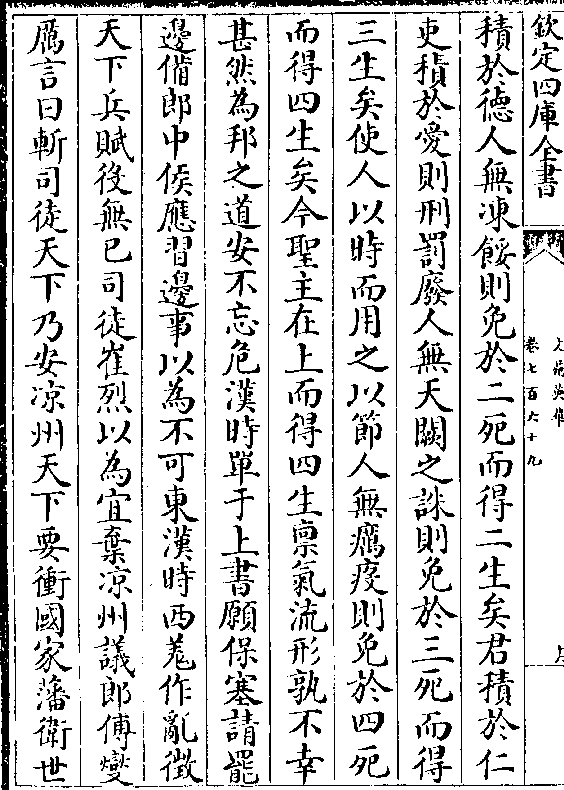 欽定四庫全書
文苑英華
卷七百六十九
積於德人無凍餒則免於二死而得二生矣君積於仁
吏積於愛則刑罰廢人無天閼之誅則免於三死而得
三生矣使人以時而用之以節人無癘疫則免於四死
而得四生矣今聖主在上而得四生禀氣流形孰不幸
甚然為邦之道安不忘危漢時單于上書願保塞請罷
邊備郎中侯應習邊事以為不可東漢時西羌作亂徵
天下兵賦役無已司徒崔烈以為宜棄凉州議郎傅燮
厲言曰斬司徒天下乃安凉州天下要衝國家藩衛世